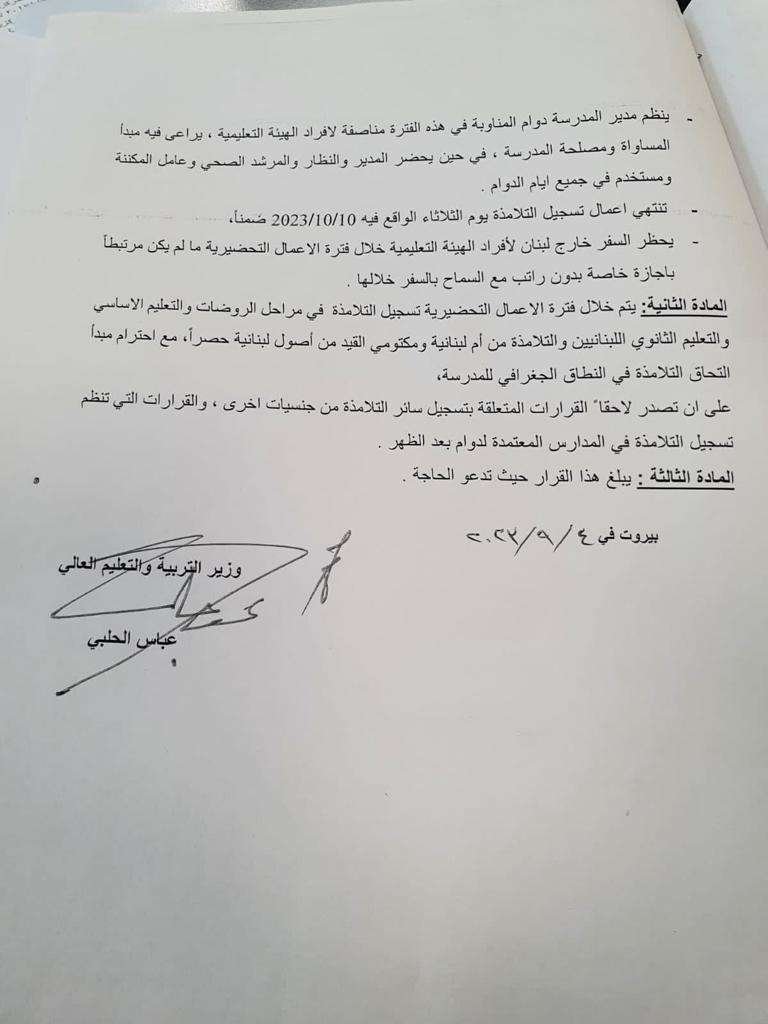 - ينظم مدير المدرسة دوام المناوبة في هذه الفترة مناصفة لافراد الهيئة التعليمية ، يراعى فيه مبدأ
المساواة ومصلحة المدرسة ، في حين يحضر المدير والنظار والمرشد الصحي وعامل المكننة
ومستخدم في جميع ايام الدوام .
- تنتهي اعمال تسجيل التلامذة يوم الثلاثاء الواقع فيه 2023/10/10 ضمناً،
- يحظر السفر خارج لبنان لأفراد الهيئة التعليمية خلال فترة الاعمال التحضيرية ما لم يكن مرتبطاً
باجازة خاصة بدون راتب مع السماح بالسفر خلالها .
المادة الثانية: يتم خلال فترة الاعمال التحضيرية تسجيل التلامذة في مراحل الروضات والتعليم الاساسي
والتعليم الثانوي اللبنانيين والتلامذة من أم لبنانية ومكتومي القيد من أصول لبنانية حصراً، مع احترام مبدأ
التحاق التلامذة في النطاق الجغرافي للمدرسة،
على ان تصدر لاحقاً القرارات المتعلقة بتسجيل سائر التلامذة من جنسيات اخرى ، والقرارات التي تنظم
تسجيل التلامذة في المدارس المعتمدة لدوام بعد الظهر .
المادة الثالثة : يبلغ هذا القرار حيث تدعو الحاجة .
بيروت في ٤/٩/٢٠٢٣
وزير التربية والتعليم العالي
عباس الحلبي